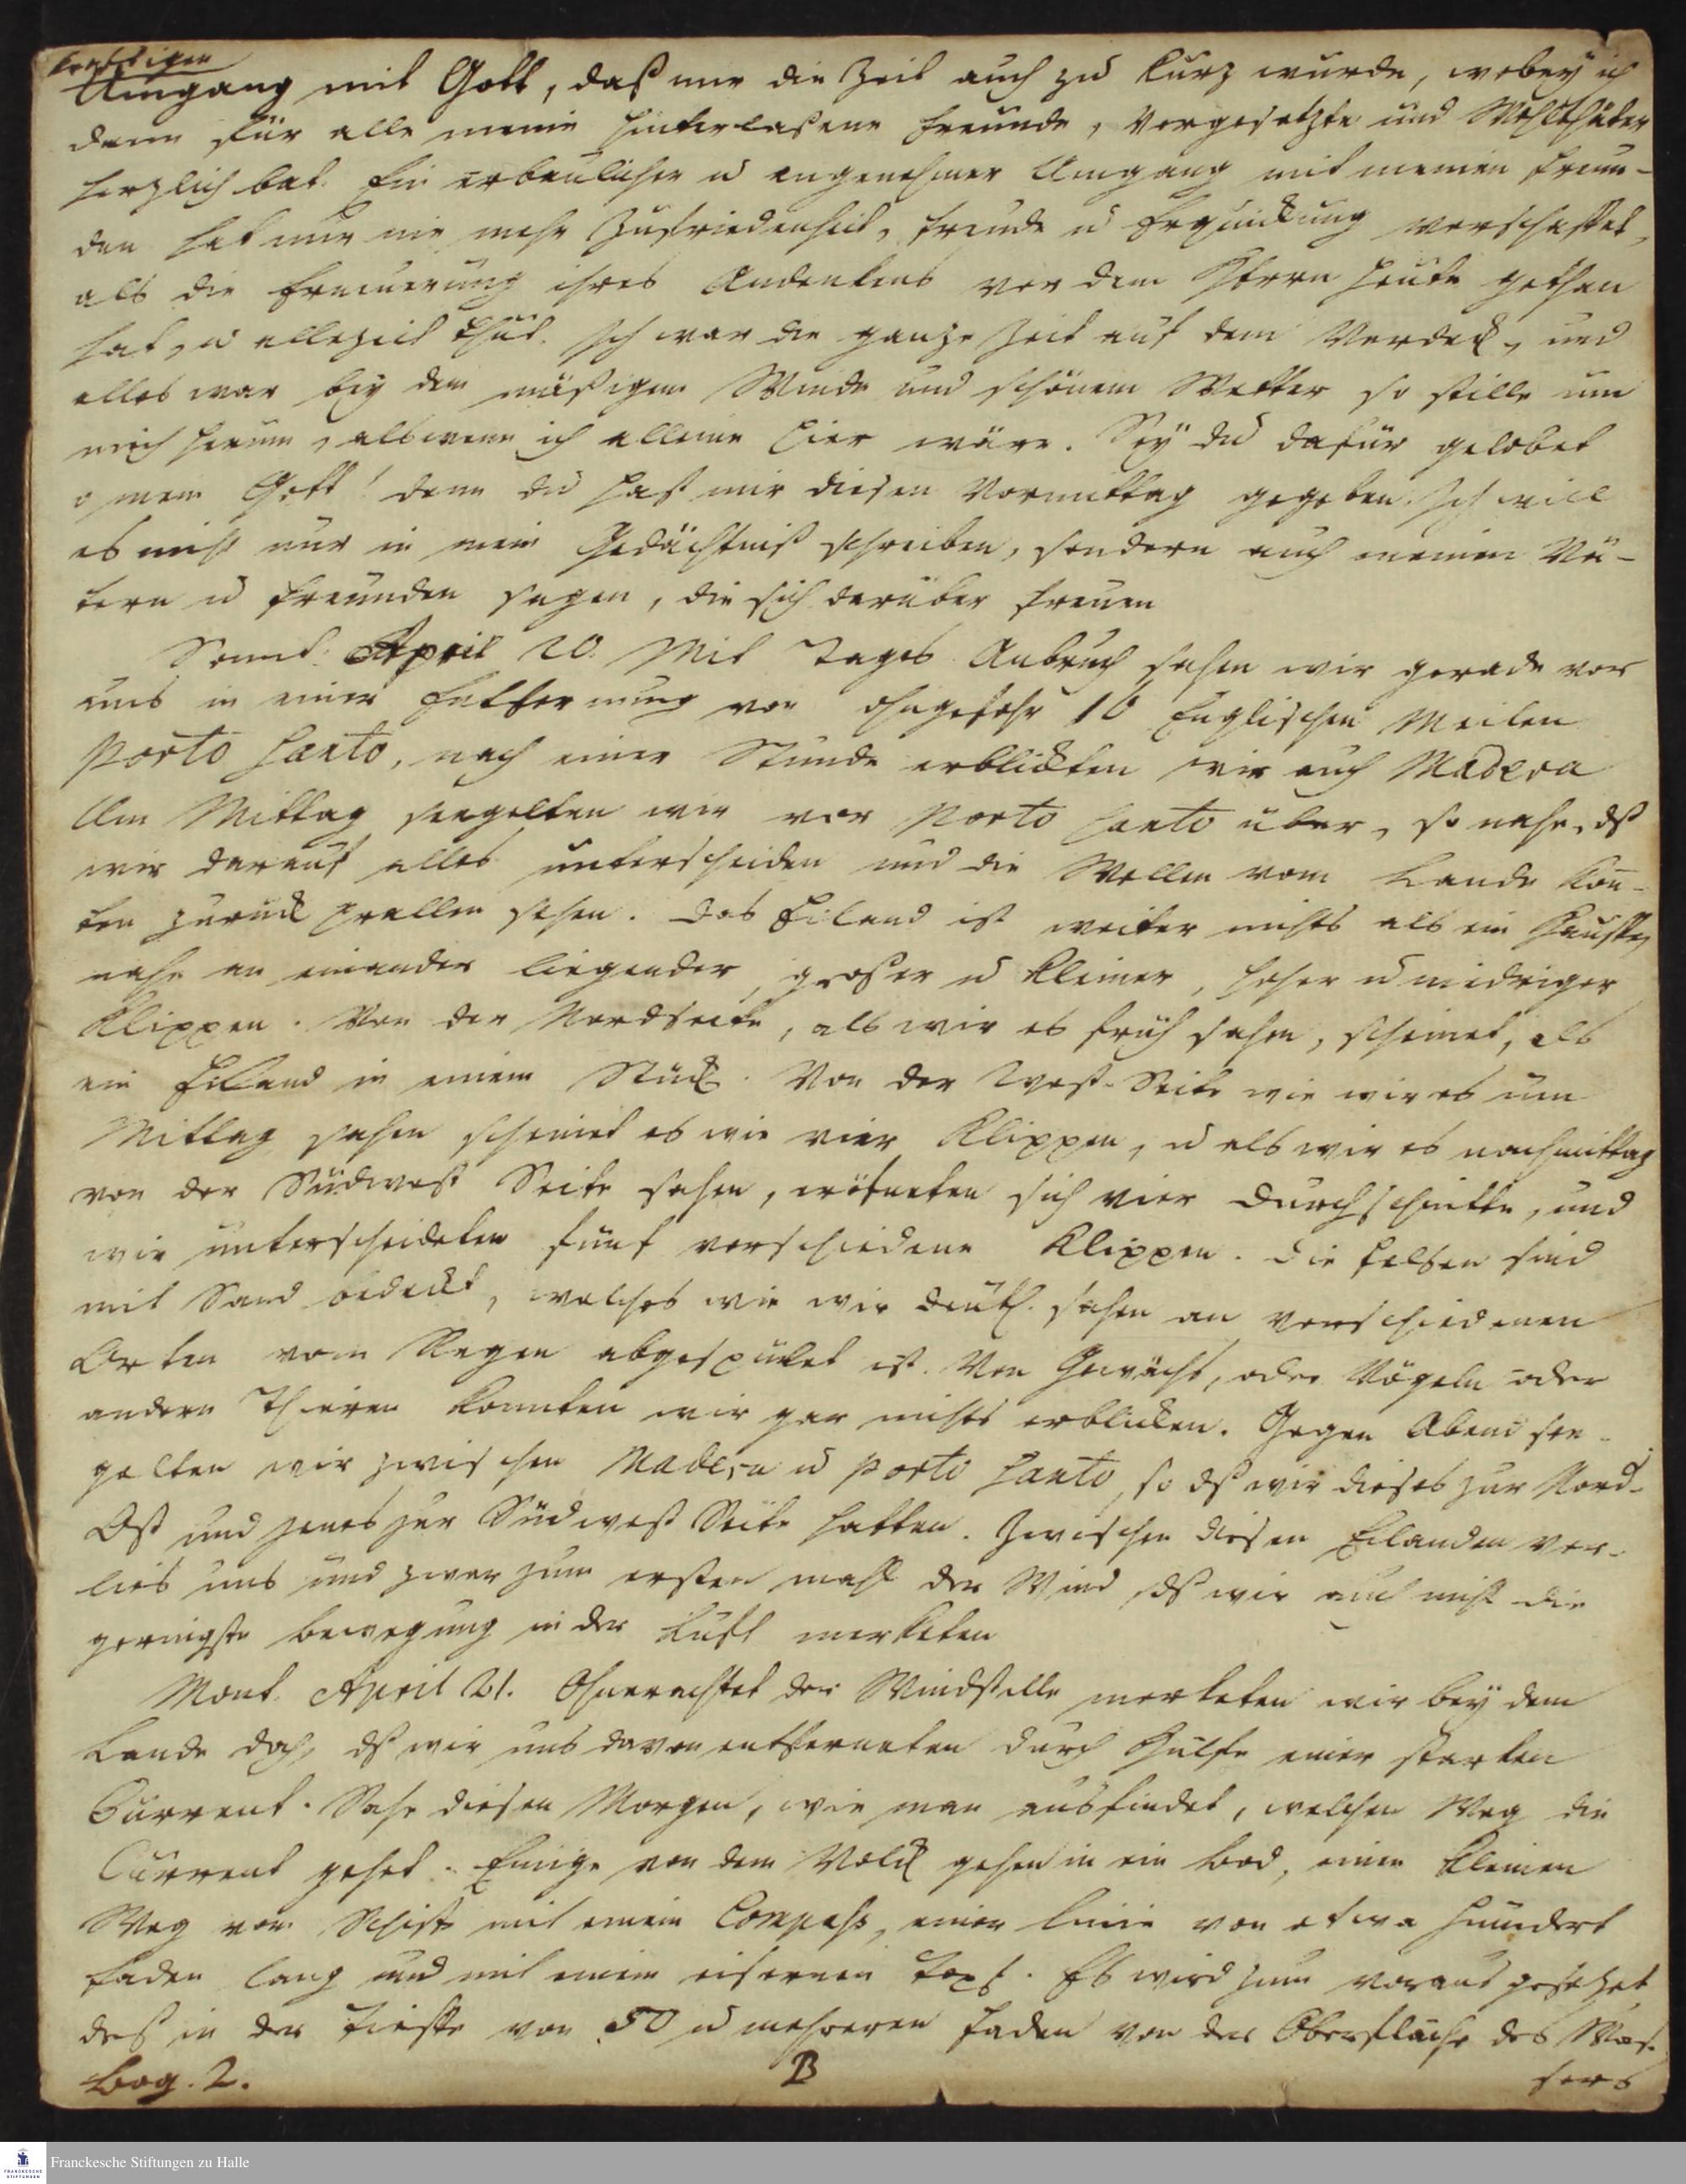 Umgang mit Gott, daß mir die Zeit auch zu kurz wurde, wobey ich
denn für alle meine hinterlaßene Freunde, Vorgesetzte und Wohlthäter
herzlich bat. Ein erbaulicher u angenehmer Umgang mit meinen Freun-
den hat mir nie mehr Zufriedenheit, Freude u Erquickung verschaffet,
als die Erneuerung ihres Andenkens vor dem Herrn heute gethan
hat, u allezeit thut. Ich war die ganze Zeit auf dem Verdeck, und
alles war bey dem mäßigen Winde und schönem Wetter so stille um
mich herum, als wenn ich alleine hier wäre. Sey du dafür gelobet
o mein Gott! denn du hast mir diesen Vormittag gegeben. Ich will
es nicht nur in mein Gedächtniß schreiben, sondern auch meinen Vä-
tern u Freunden sagen, die sich darüber freuen
Sonnt. April 20. Mit Tages Anbruch sahen wir gerade vor
uns in einer Entfernung von ohngefehr 10 Englischen Meilen
Porto Santo, nach einer Stunde erblickten wir auch Madera
Um Mittag seegelten wir vor Porto Santo über, so nahe, dß
wir darauf alles unterscheiden und die Wellen vom Lande kon-
ten zurück prallen sehen. Das Eiland ist weiter nichts als ein Hauffen
nahe an einander liegender, großer u kleiner, hoher u niedriger
Klippen. Von der Nordseite, als wir es früh sahen, scheinet, als
ein Eiland in einem Stück. Von der West-Seite wie wir es um
Mittag sahen scheinet es wie vier Klippen, u als wir es nachmittag
von der Südwest Seite sahen, eröfneten sich vier Durchschnitte, und
wir unterscheideten fünf verschiedene Klippen. Die Felsen sind
mit Sand bedeckt, welches wie wir deutl. sahen an verschiedenen
Orten vom Regen abgespület ist. Von Gewächs, oder Vögeln oder
andern Thieren konnten wir gar nichts erblicken. Gegen Abend see-
gelten wir zwischen Madera u Porto Santo, so dß wir dieses zur Nord-
Ost und jenes zur Südwest Seite hatten. Zwischen diesen Eilanden ver-
lies uns und zwar zum ersten mahl der Wind, dß wir auch nicht die
geringste Bewegung in der Luft merkten
Mont. April 21. Ohnerachtet der Windstille merkten wir bey dem
Lande doch, dß wir uns davon entferneten durch Hülfe einer starken
Current. Sahe diesen Morgen, wie man ausfindet, welchen Weg die
Current gehet. Einige von dem Volck gehen in ein Bod, einen kleinen
Weg vom Schiffe mit einem Compass, einer Linie von etwa hundert
Faden lang und mit einem eisernen Topf. Es wird zum voraus gesetzet
daß in der Tieffe von 50 u mehreren Faden von der Oberfläche des Waß-
Bog. 2. B sers
Franckesche Stiftungen zu Halle